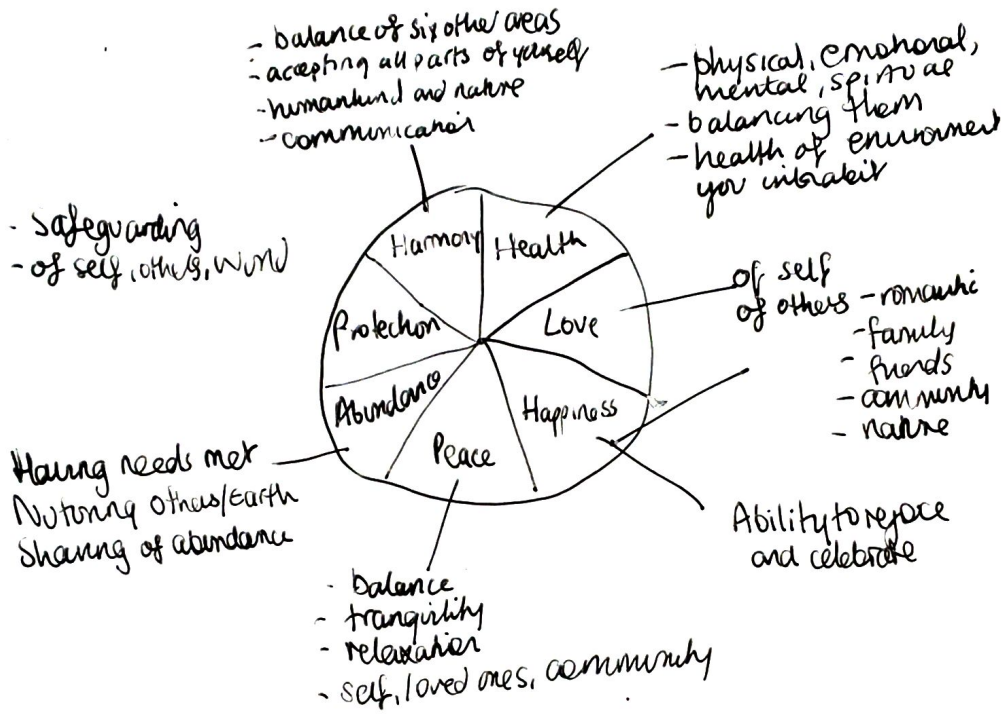 - balance of six other areas
- accepting all parts of yourself
- humankind and nature
- communication
- physical, emotional,
mental, spiritual
- balancing them
- health of environment
you inhabit
- Safeguarding
- of self, others, world
Harmony
Health
Protection
Love
of self
of others - romantic
- family
- friends
- community
- nature
Abundance
Happiness
Peace
Having needs met
Nuturing others/Earth
Sharing of abundance
Ability to rejoice
and celebrate
- balance
- tranquility
- relaxation
- self, loved ones, community